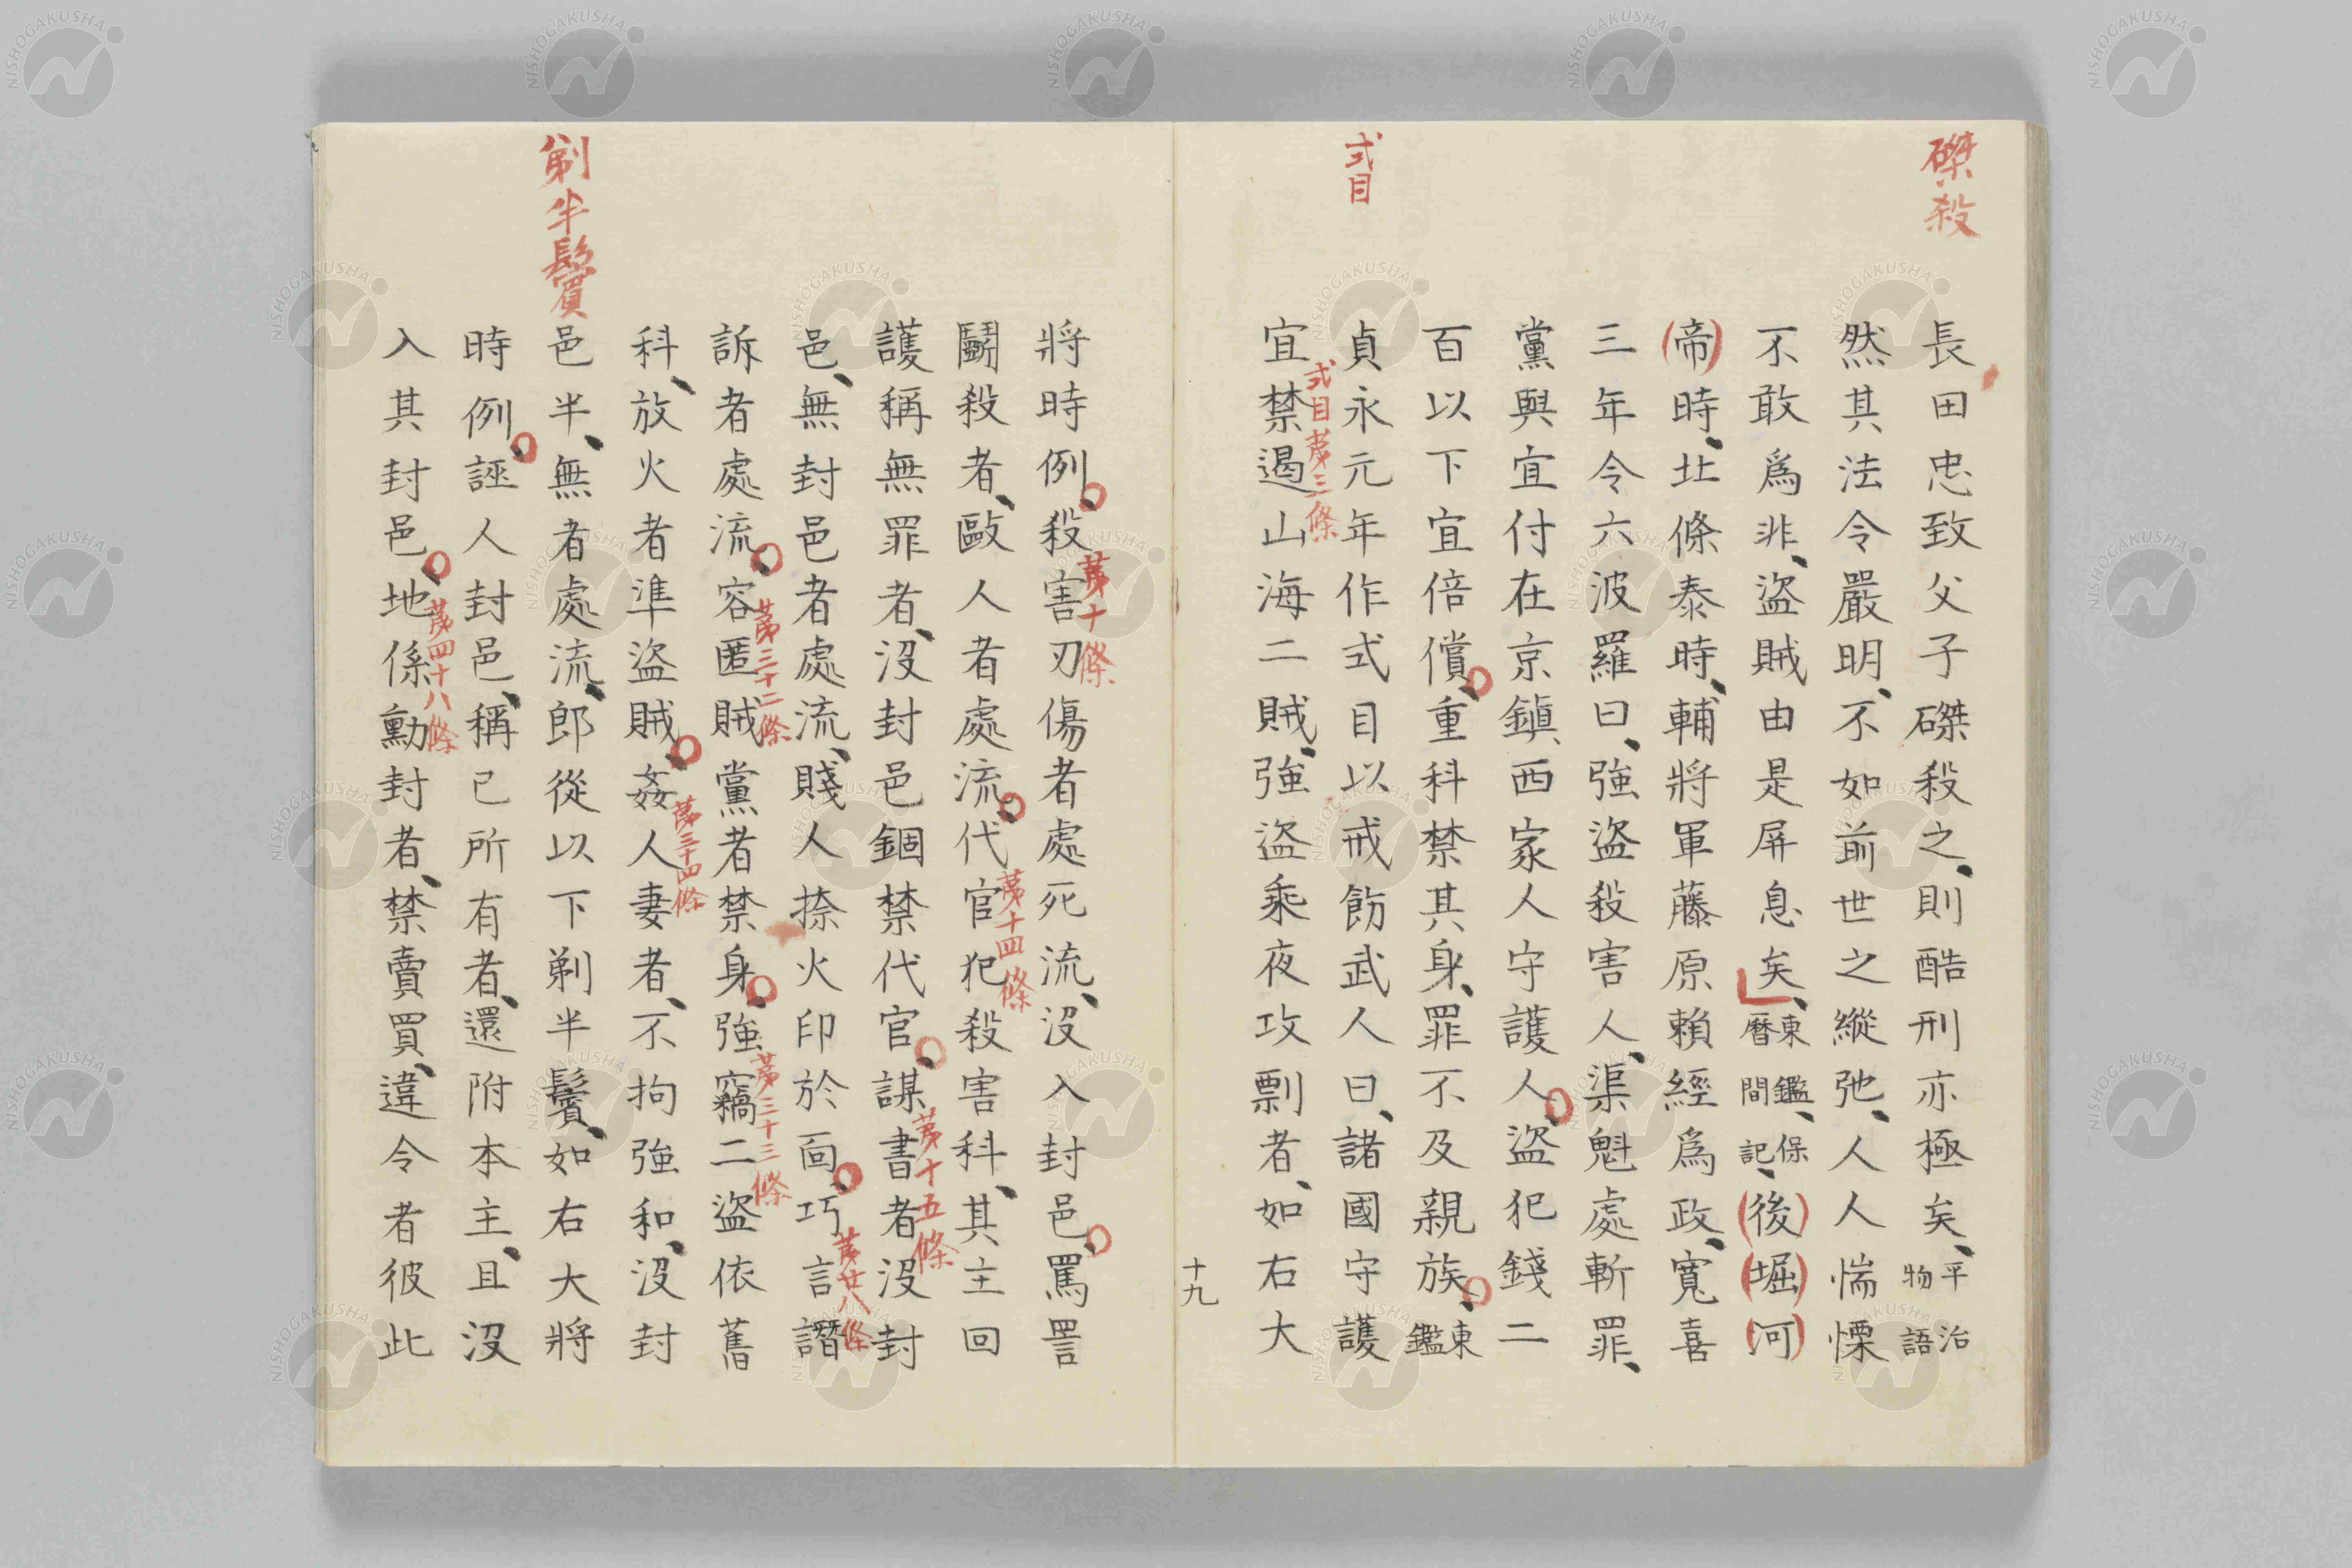 磔殺
長田忠致父子磔殺之、則酷刑亦極矣、平治物語
然其法令嚴明、不如前世之縱弛、人人惴慄
不敢爲非、盜賊由是屏息矣、東鑑、保曆間記、後堀河
帝時、北條泰時、輔將軍藤原賴經爲政、寬喜
三年令六波羅曰、強盜殺害人、渠魁處斬罪、
黨與宜付在京鎭西家人守護人、盜犯錢二
百以下宜倍償、重科禁其身、罪不及親族、東鑑
式目
貞永元年作式目以戒飭武人曰、諸國守護
式目第三條
宜禁遏山海二賊、強盜乘夜攻剽者、如右大
十九
將時例、殺害刃傷者處死流、沒入封邑、罵詈
第十條
鬪殺者、毆人者處流、代官犯殺害科、其主回
第十四條
護稱無罪者、沒封邑錮禁代官、謀書者沒封
第十五條
邑、無封邑者處流、賤人捺火印於面、巧言譖
第廿八條
訴者處流、容匿賊黨者禁身、強竊二盜依舊
第三十二條
第三十三條
科、放火者準盜賊、姦人妻者、不拘強和、沒封
第三十四條
剃半鬢
邑半、無者處流、郎從以下剃半鬢、如右大將
時例、誣人封邑、稱己所有者、還附本主、且沒
入其封邑、地係勳封者、禁賣買、違令者彼此
第四十八條
NISHOGAKUSHA